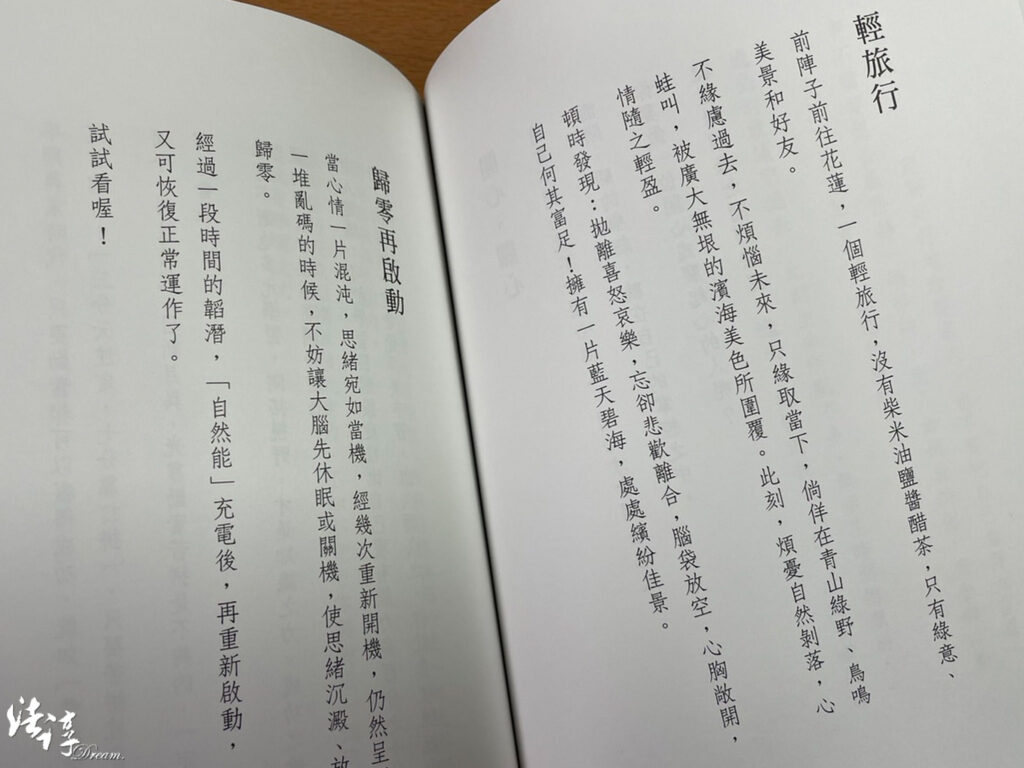 輕旅行
前陣子前往花蓮，一個輕旅行，沒有柴米油鹽醬醋茶，只有綠意、
美景和好友。
不緣慮過去，不煩惱未來，只緣取當下，倘佯在青山綠野、鳥鳴
蛙叫，被廣大無垠的濱海美色所圍覆。此刻，煩憂自然剝落，心
情隨之輕盈。
頓時發現：拋離喜怒哀樂，忘卻悲歡離合，腦袋放空，心胸敞開，
自己何其富足！擁有一片藍天碧海，處處繽紛佳景。
歸零再啟動
當心情一片混沌，思緒宛如當機，經幾次重新開機，仍然呈
一堆亂碼的時候，不妨讓大腦先休眠或關機，使思緒沉澱、放
歸零。
經過一段時間的韜潛，「自然能」充電後，再重新啟動，
又可恢復正常運作了。
試試看喔！
法諄
Dream.